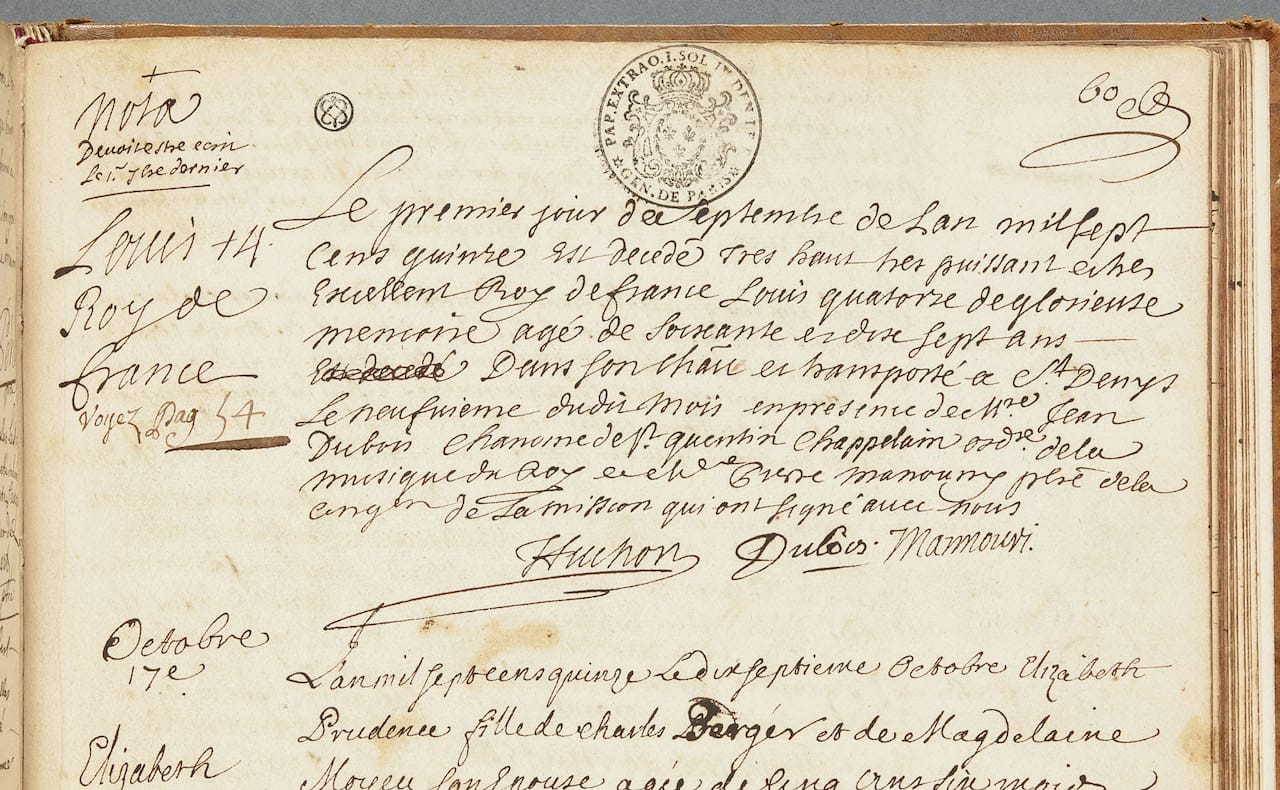 Nota
Devoit estre ecrit
Le 1r 7bre dernier
PAP. EXTRAO. I. SOL
GEN. DE PARIS
60
Louis 14
Roy de
france
Voyez Pag 54
Le premier jour de septembre de Lan mil sept
Cens quinze Est decedé tres haut tres puissant et tres
Excellent Roy de france Louis quatorze de glorieuse
memoire agé de soixante et dix sept ans
Est decedé Dans son Chãu et transporté a St Denys
Le neufuieme dudit mois en presence de Mre Jean
Dubois Chanoine de St quentin Chappelain ordre de la
musique du Roy et de Mre Pierre manoury ptre de la
congon de La mission qui ont signé avec nous
Huchon Dubois. Mannouri.
Octobre
17e
L'an mil sept cens quinze Le dix septieme Octobre Elizabeth
Prudence fille de charles Berger et de Magdelaine
Elizabeth
son Epouse agée de cinq ans six mois